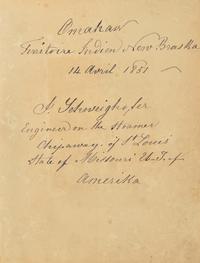 Omahaw
Territoire Indien New Braska
14 Avril 1851
J. Schweighofer
Engineer on the steamer
Chipaway of St Louis
State of Missouri U.S. of
Amerika